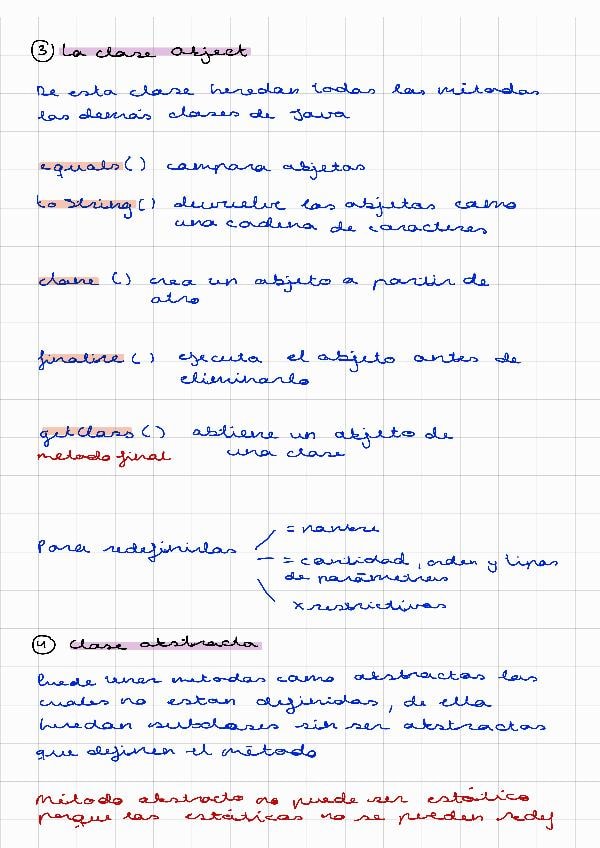 ③ La clase Object
De esta clase heredan todos los métodos
las demás clases de Java
equals() compara objetos
toString() devuelve los objetos como
una cadena de caracteres
clone () crea un objeto a partir de
otro
finalize () ejecuta el objeto antes de
eliminarlo
getClass () obtiene un objeto de
metodo final una clase
Para redefinirlos
= nombre
= cantidad, orden y tipos
de parámetros
x restrictivos
④ Clase abstracta
Puede tener metodos como abstractos los
cuales no estan definidos, de ella
heredan subclases sin ser abstractas
que definen el método
Método abstracto no puede ser estático
porque los estáticos no se pueden redef